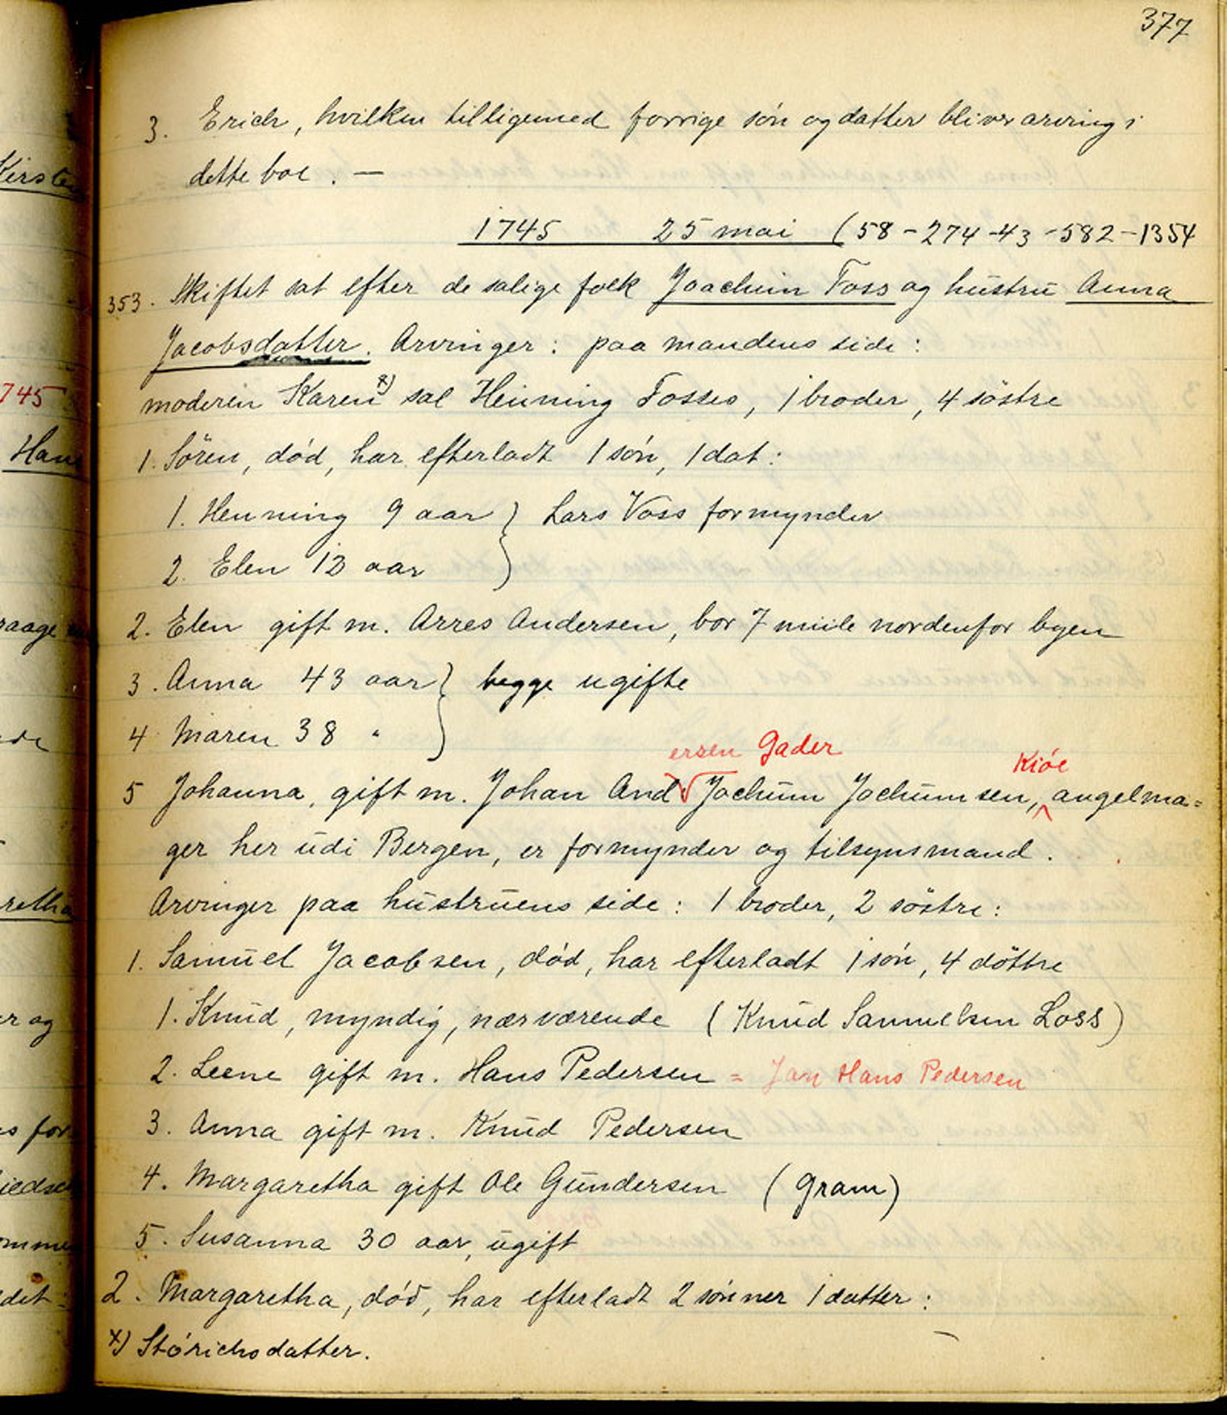 377
3. Erich, hvilken tilligemed forrige søn og datter bliver arving i
dette boe. —
1745 25 mai (58-274-43-582-1354
353. Skiftet sat efter de salige folk Joachim Foss og hustru Anna
Jacobsdatter. Arvinger: paa mandens side:
moderen Karen x) sal Henning Fosses, 1 broder, 4 söstre
1. Sören, död, har efterladt 1 søn, 1 dat:
1. Henning 9 aar } Lars Voss formynder
2. Elen 13 aar
2. Elen gift m. Arres Andersen, bor 7 mile nordenfor byen
3. Anna 43 aar } begge ugifte
4 Maren 38 "
ersen Gader Kiöe
5 Johanna, gift m. Johan And Jochum Jochumsen, angelma=
ger her udi Bergen, er formynder og tilsynsmand.
Arvinger paa hustruens side: 1 broder, 2 söstre:
1. Samuel Jacobsen, död, har efterladt 1 søn, 4 döttre
1. Knud, myndig, nærværende (Knud Samuelsen Loss)
2. Leene gift m. Hans Pedersen = Jan Hans Pedersen
3. Anna gift m. Knud Pedersen
4. Margaretha gift Ole Gundersen (Gram)
5. Susanna 30 aar, ugift
2. Margaretha, död, har efterladt 2 sönner 1 datter:
x) Störichsdatter.
Kirste
745
Han
raage
retha
er og
s for